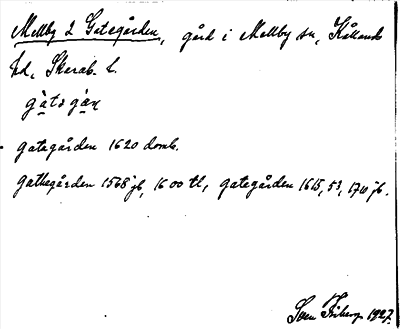 Mellby 2 Gategården, gård i Mellby sn, Kållands
hd, Skarab. l.
gàtegàn
gategården 1620 domb.
gathegården 1568 jb, 1600 tl, gategården 1615, 53, 1710 jb.
Sven Friberg 1927.